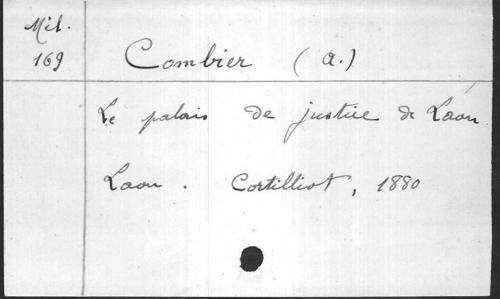 Mél.
169
Combier (A.)
Le palais de justice de Laon
Laon. Cortilliot, 1880